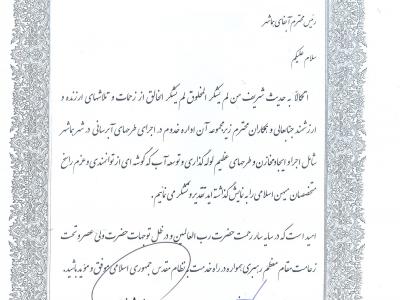 رئیس محترم آبفای بهاشهر
سلام علیکم
اتکالاً به حدیث شریف من لم یشکر المخلوق لم یشکر الخالق از زحمات و تلاشهای ارزنده و
ارزشمند جنابعالی و همکاران محترم زیرمجموعه آن اداره خدوم در اجرای طرحهای آبرسانی در شهر
شامل اجرا و ایجاد مخازن و طرحهای عظیم لوله گذاری و توسعه آب که گوشه ای از توانمندی و عزم راسخ
متخصصان میهن اسلامی را به نمایش گذاشته اید تقدیر و تشکر می نمایم.
امید است که در سایه سار رحمت حضرت رب العالمین و در ظل توجهات حضرت ولی عصر و تحت
زعامت مقام معظم رهبری همواره در راه خدمت به نظام مقدس جمهوری اسلامی موفق و مؤید باشید.